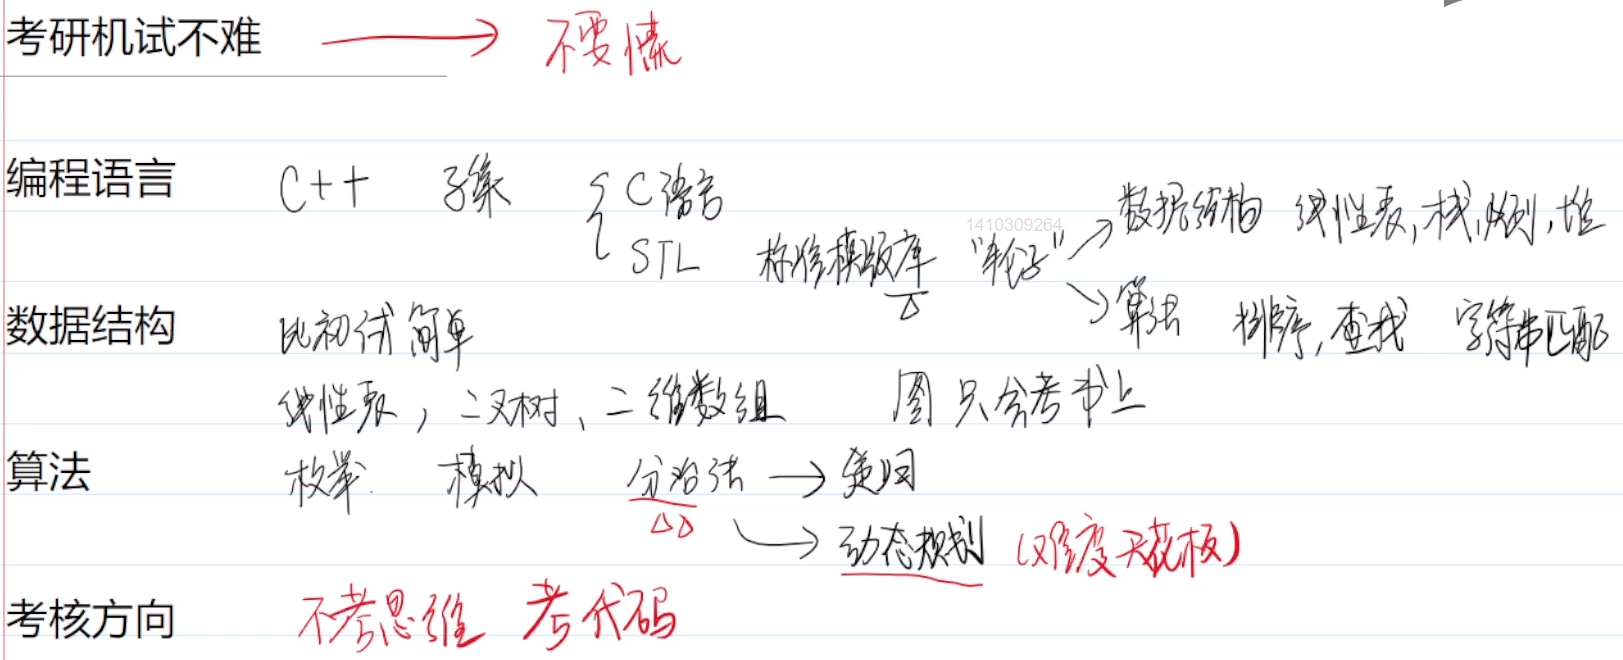 考研机试不难 → 不要慌
编程语言 C++ 子集 { C语言
STL 标准模版库 "轮子"
1410309264
→ 数据结构 线性表,栈,队列,堆
→ 算法 排序,查找 字符串匹配
数据结构 比初试简单
线性表,二叉树、二维数组 图 只会考书上
算法 枚举. 模拟 分治法 → 递归
→ 动态规划 (难度天花板)
考核方向 不考思维 考代码